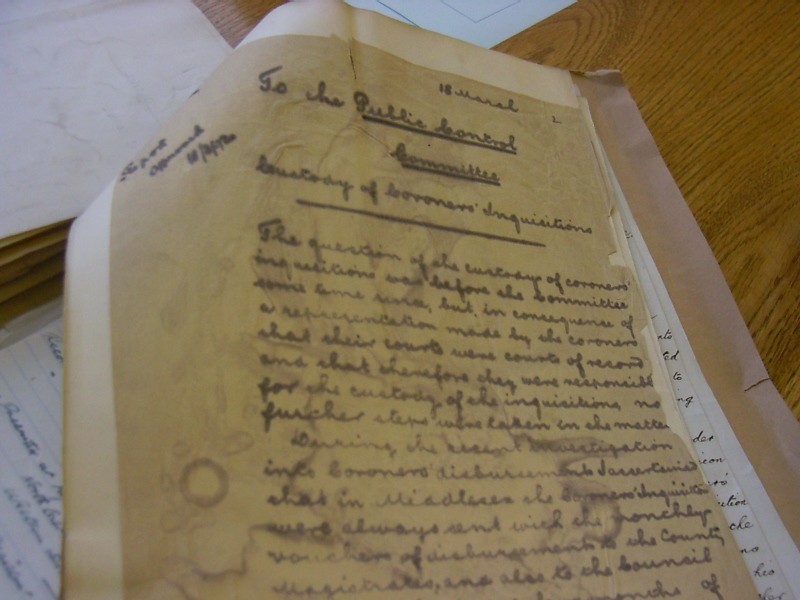 18 March
2
To the Public Control
Committee
Custody of Coroners' Inquisitions
The question of the custody of coroners'
inquisitions was before the Committee
some time since, but, in consequence of
a representation made by the coroners
that their courts were courts of record
and that therefore they were responsible
for the custody of the inquisitions, no
further steps were taken in the matter
During the recent investigation
into Coroners' disbursements I ascertained
that in Middlesex the Coroners' Inquisitions
were always sent with the monthly
vouchers of disbursements to the County
Magistrates, and also to the Council
months of
to
ng
the
no